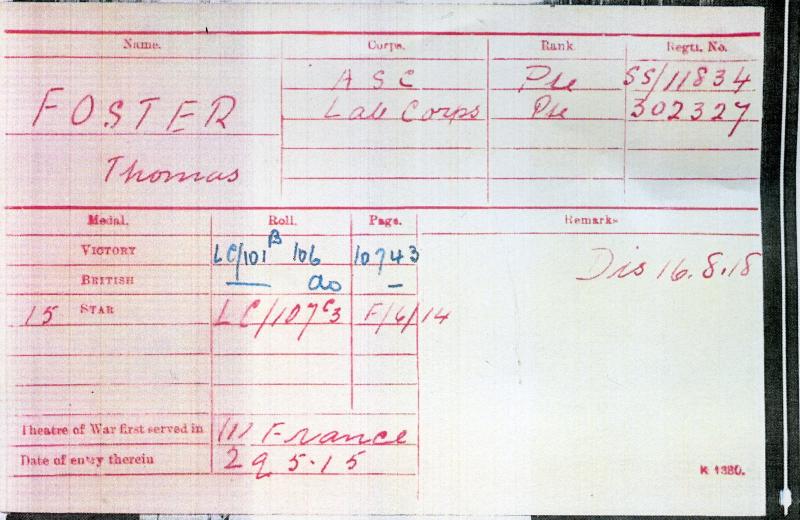 Name. Corps. Rank. Regtl. No.
FOSTER A S C Pte SS/11834
Lab Corps Pte 302327
Thomas
Medal. Roll. Page. Remarks
VICTORY LC/101 B 106 10743 Dis 16.8.18
BRITISH — do —
15 STAR LC/107 C3 F/6/14
Theatre of War first served in France
Date of entry therein 29 5.15
K 1380.